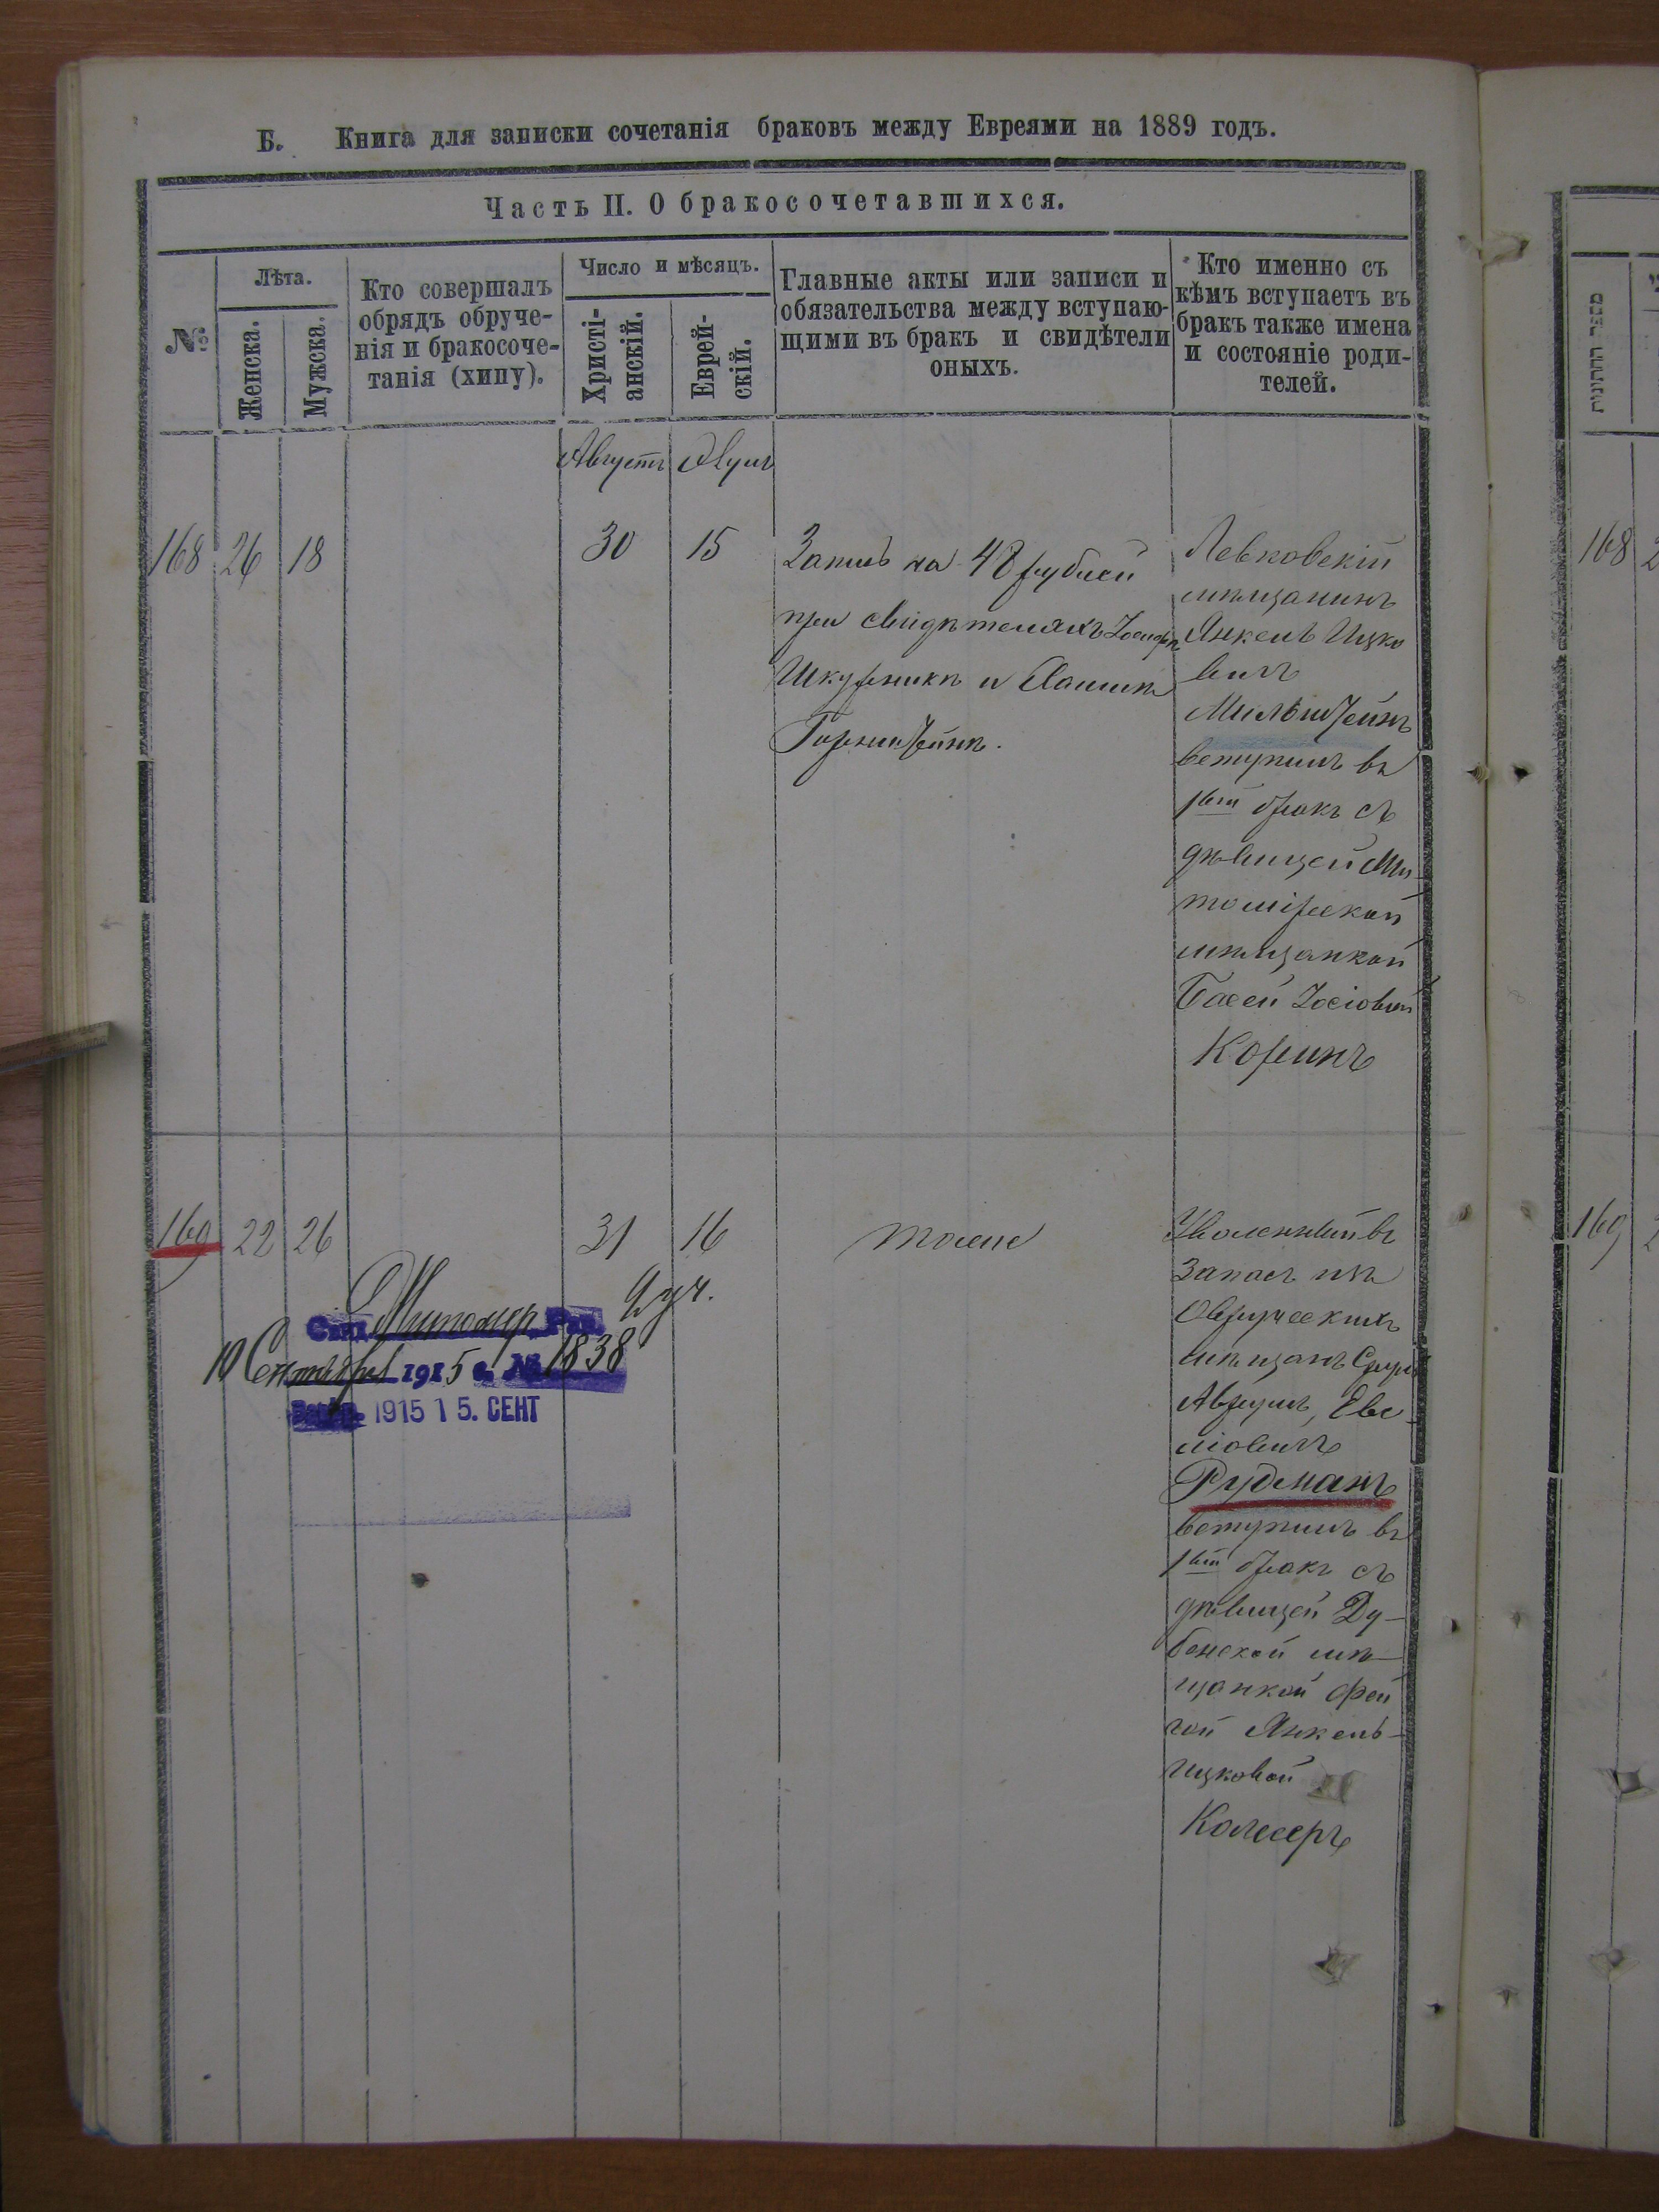 Б. Книга для записки сочетанія браковъ между Евреями на 1889 годъ.
Часть II. О бракосочетавшихся.
№
Лѣта.
Женска.
Мужска.
Кто совершалъ
обрядъ обруче-
нія и бракосоче-
танія (хипу).
Число и мѣсяцъ.
Христі-
анскій.
Еврей-
скій.
Главные акты или записи и
обязательства между вступаю-
щими въ бракъ и свидѣтели
оныхъ.
Кто именно съ
кѣмъ вступаетъ въ
бракъ также имена
и состояніе роди-
телей.
Августъ
168 26 18 30 15
Запись на 48 рублей
при свидѣтеляхъ
Шкурника и
Горинштейна.
Левковскій
мѣщанинъ
Янкель Ицко
вичъ
Мильштейнъ
вступилъ въ
1вый бракъ съ
дѣвицей Жи-
томірской
мѣщанкой
Басей Іосіовой
Коринъ
169 22 26 31 16
тоже
Уволенный въ
запасъ изъ
Овручскихъ
мѣщанъ
Аврумъ
віовичъ
Рудманъ
вступилъ въ
1вый бракъ съ
дѣвицей Ду-
бенской мѣ-
щанкой Фей
гой Янкель-
Ицковой
10 Сентября 1915 г. № 1838
1915 15. СЕНТ
168
169